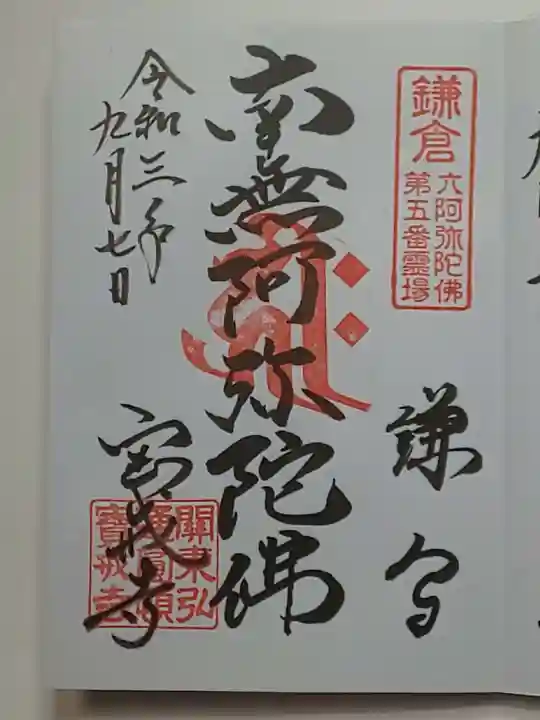 鎌倉
六阿弥陀佛
第五番霊場
謙写
南無阿弥陀佛
令和三年
九月七日
宝戒寺
關東弘
寶戒寺